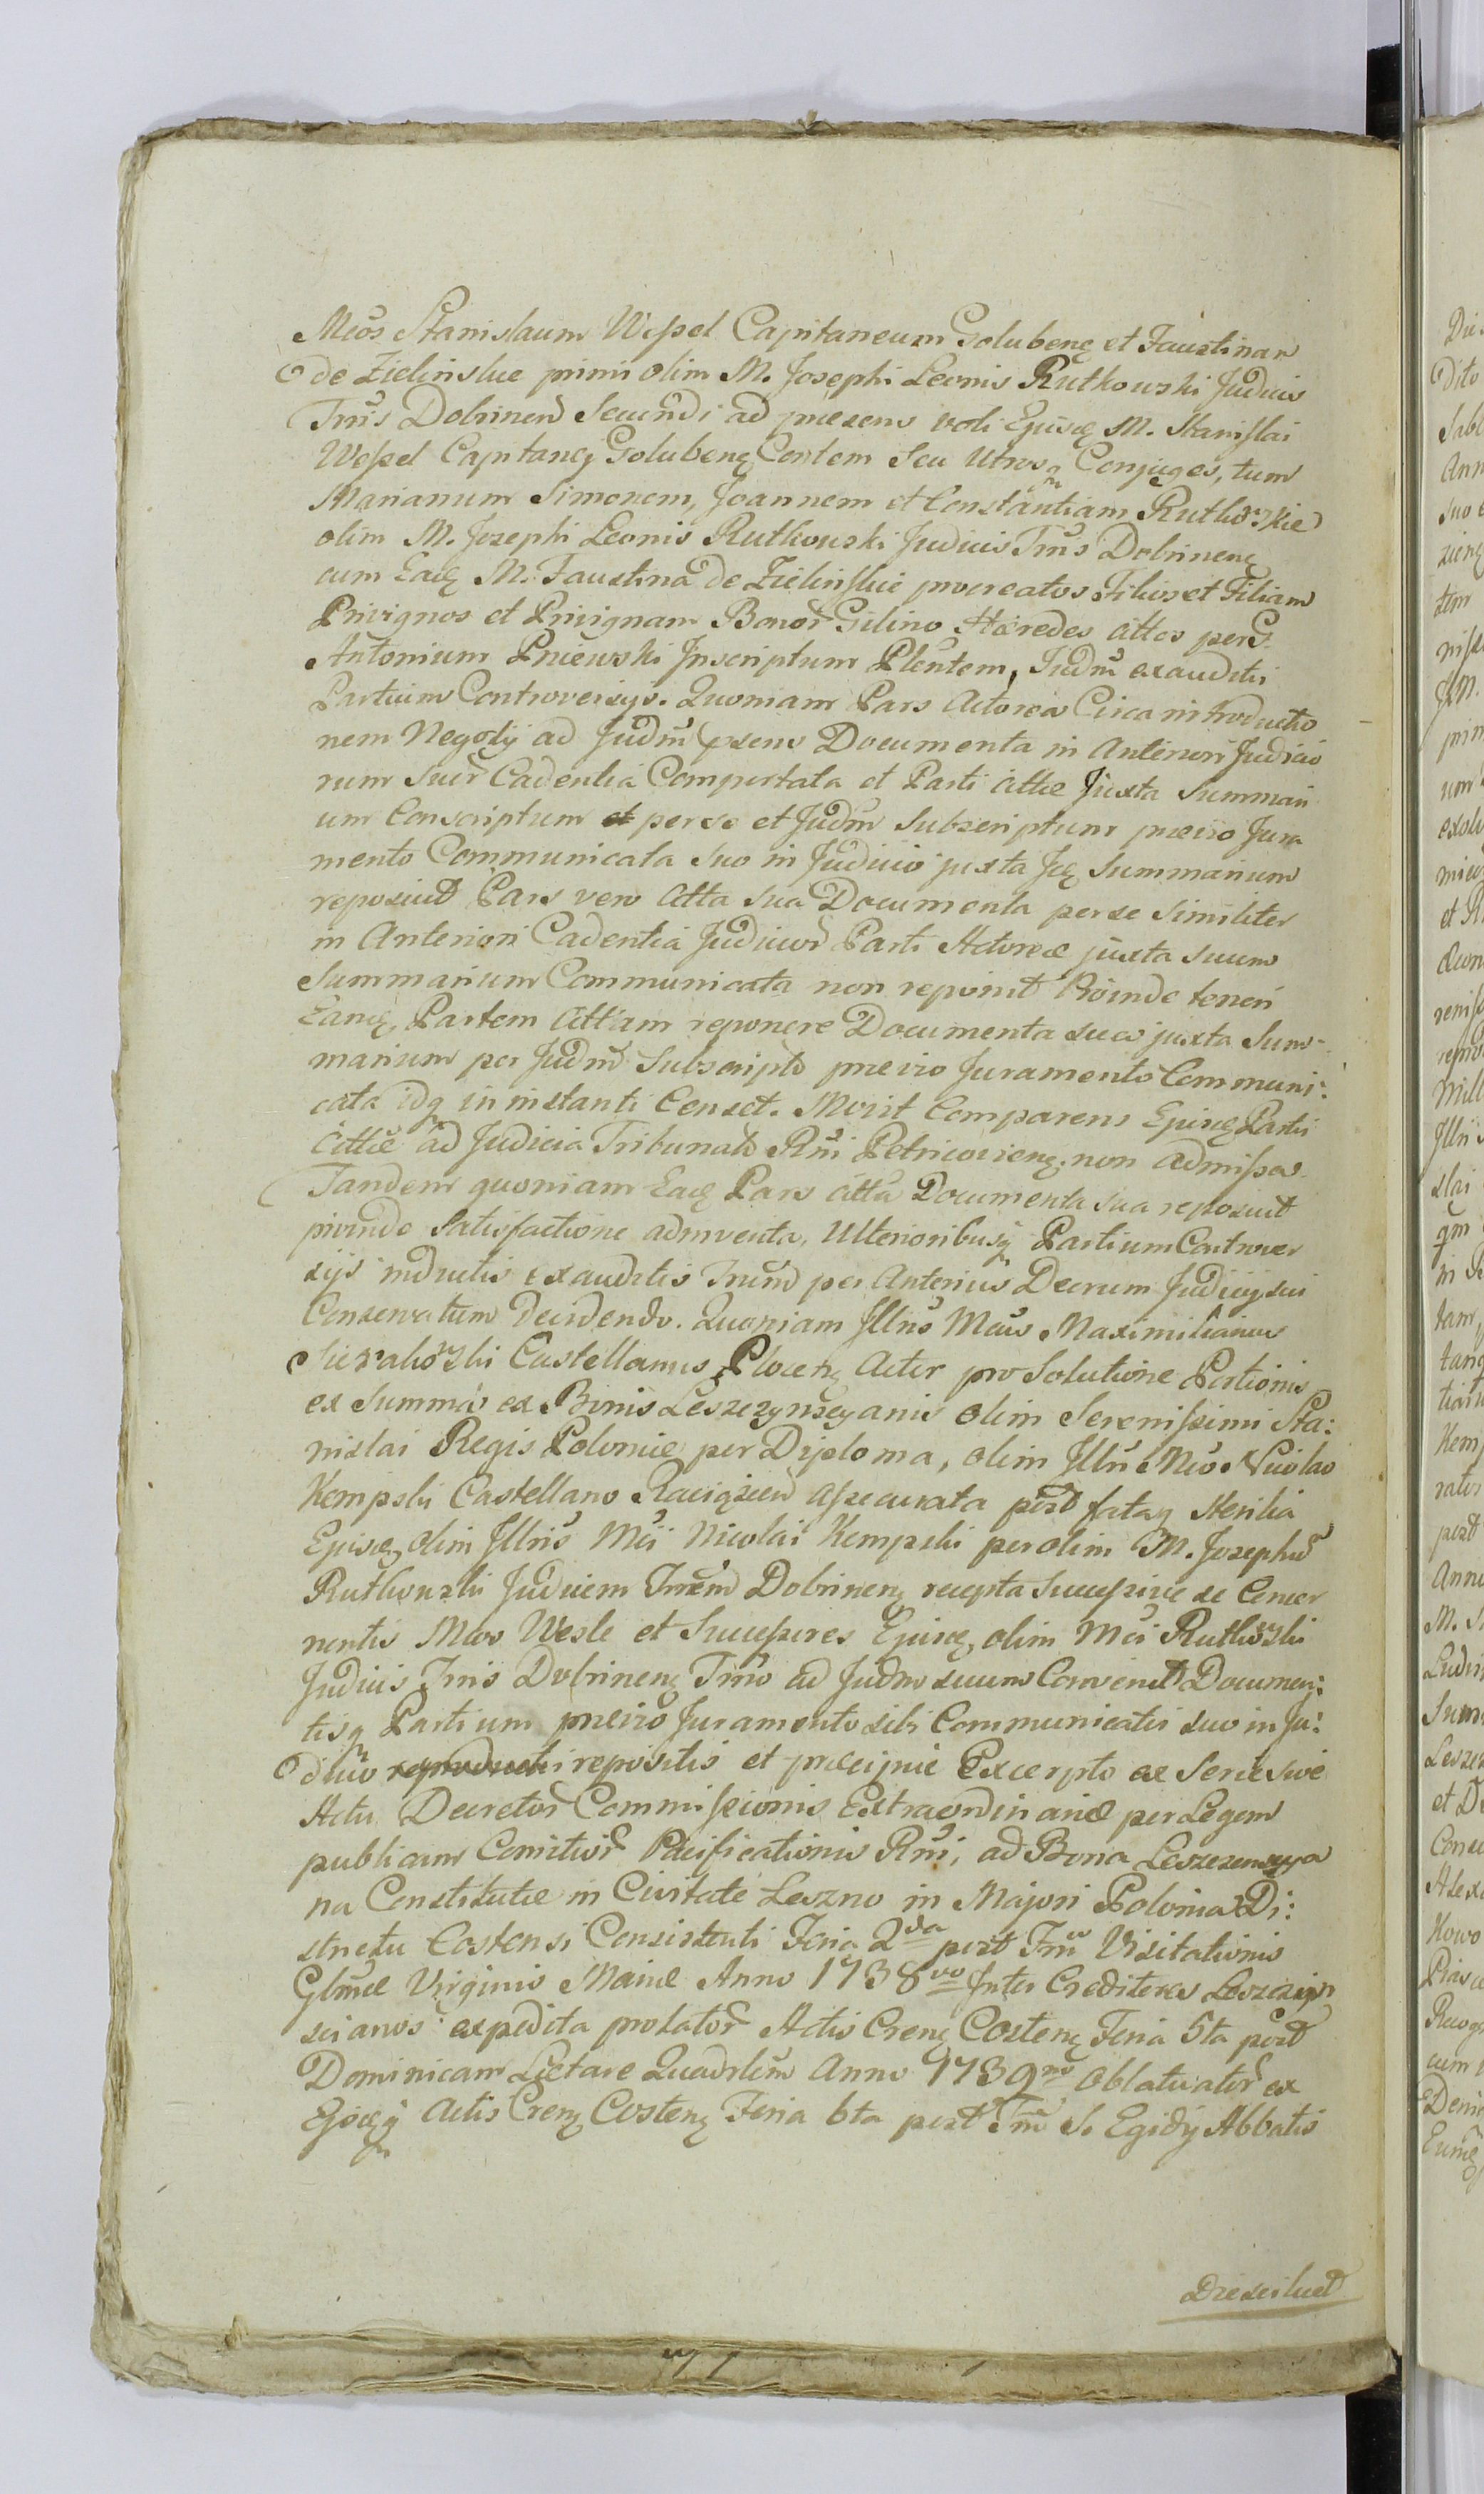 Mcos Stanislaum Weſsel Capitaneum Golubenę et Faustinam
de Zielinskie primi olim M. Josephi Leonis Rutkowski Judicis
Trris Dobrinen Secundi ad præsens voti Ejusdę M. Stanislai
Weſsel Capitanej Golubenę Contem Seu Utrosq Conjuges, tum
Marianum Simonem, Joannem et Constantiam Rutkowskie
olim M. Josephi Leonis Rutkowski Judicis Trris Dobrinenę
cum Eadę M. Faustina de Zielinskie procreatos Filios et Filiam
Privignos et Privignam Bonor Gilino Hæredes Cittos per G.
Antonium Pniewski Inscriptum Plentem, Judm exauditis
Partium Controversys. Quoniam Pars Actorea Circa introductio
nem Negotÿ ad Judm psens Documenta in Anteriori Judicio
rum suor Cadentia Comportata et Parti Cittæ Juxta Summari
um Conscriptum et per se et Judm Subscriptum prævio Jura
mento Communicata suo in Judicio juxta Idę Summarium
reposuit Pars vero Citta sua Documenta per se Similiter
in Anteriori Cadentia Judicior Parti Actoreæ juxta suum
Summarium Communicata non reposuit Proinde teneri
Eandę Partem Cittam reponere Documenta sua juxta Sum-
marium per Judm Subscripto prævio Juramento Communi:
cata idq in instanti Censet. Movit Comparens Ejusdę Partis
Cittæ ad Judicia Tribunals Rni Petricovienę non admiſsa.
Tandem quoniam Eadę Pars Citta Documenta sua reposuit
proinde Satisfactione adinventa, Ulterioribusq Partium Controver
sÿs inductis exauditis Trmnd per Anterius Decrum Judicÿ sui
Conservatum Decidendo. Quoniam Illris Mcus Maximilianus
Sierakowski Castellanus Plocenę Actor pro Solutione Portionis
ex Summa ex Bonis Leszczynscyanis olim Serenissimi Sta:
nislai Regis Poloniæ per Diploma, olim Illri Mco Nicolao
Kempski Castellano Raciązien aſsecurata post fataq sterilia
Ejusdę olim Illris Mci Nicolai Kempski per olim M. Josephum
Rutkowski Judicem Trrem Dobrinenę recepta Succeſsive se Concer
nentis Mcos Wesle et Succeſsores Ejusdę olim Mci Rutkowski
Judicis Trris Dobrinenę Trno ad Judm suum Convenit Documen:
tisq Partium prævio Juramento sibi Communicatis suo in Ju:
dicio reproducti repositis et præcipue Excerpto ex Serie sive
Actu Decretor Commiſsionis Extraordinariæ per Legem
publicam Comitior Pacificationis Rni, ad Bona Leszczynscya
na Constitutæ in Civitate Leszno in Majori Polonia Di:
strictu Costensi Consistenti Feria 2da post Fm Visitationis
Glmæ Virginis Mariæ Anno 1738vo Inter Creditores Leszczyn
scianos expedita prolator Actis Crenę Costenę Feria 5ta post
Dominicam Lætare Quadrlem Anno 1739no oblatuator ex
Ejsdęq Actis Crenę Costenę Feria 6ta post Fm S. Egidÿ Abbatis